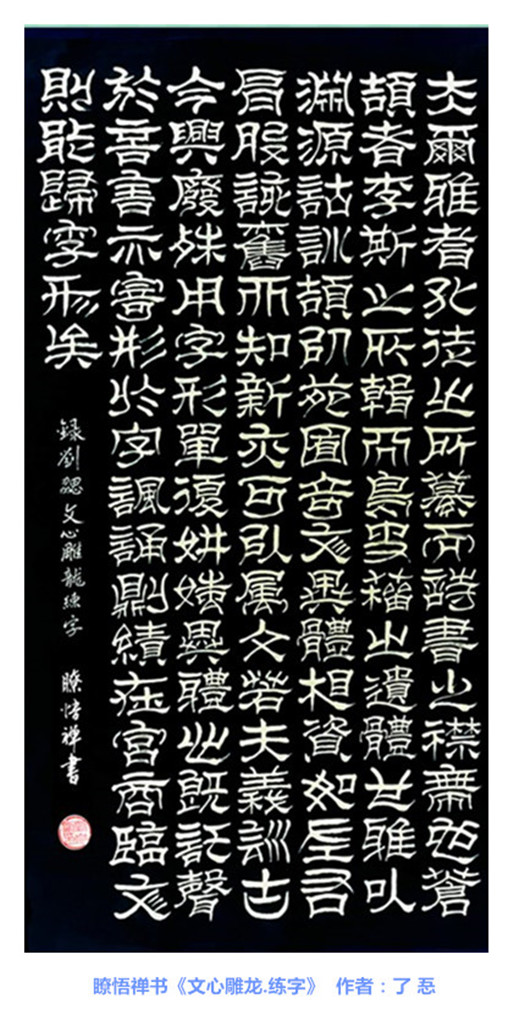 夫爾雅者孔徒之所纂而詩書之襟帶也蒼
頡者李斯之所輯而鳥史籀之遺體也雅以
淵源詁訓頡以苑囿奇文異體相資如左右
肩股該舊而知新亦可以屬文若夫義訓古
今興廢殊用字形單復妍媸異體心既託聲
於言言亦寄形於字諷誦則績在宮商臨文
則能歸字形矣
錄劉勰文心雕龍練字 瞭悟禪書
瞭悟禅书《文心雕龙.练字》 作者：了 忍